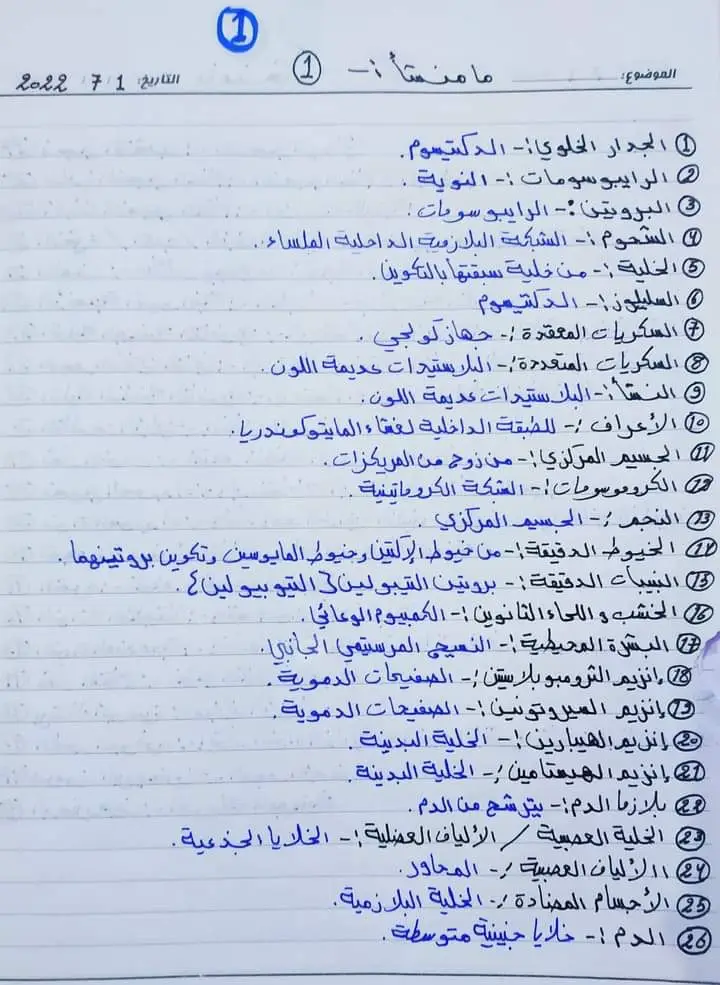 1
الموضوع: ما منشأ :- 1 التاريخ: 1 / 7 / 2022
1 الجدار الخلوي :- الدكتيسوم.
2 الرايبوسومات :- النوية.
3 البروتين :- الرايبوسومات.
4 الشحوم :- الشبكة البلازمية الداخلية الملساء.
5 الخلية :- من خلية سبقتها بالتكوين.
6 السليلوز :- الدكتيسوم
7 السكريات المعقدة :- جهاز كولجي.
8 السكريات المتعددة :- البلاستيدات عديمة اللون.
9 النشأ :- البلاستيدات عديمة اللون.
10 الأعراف :- للطبقة الداخلية لغشاء المايتوكوندريا.
11 الجسيم المركزي :- من زوج من المريكزات.
12 الكروموسومات :- الشبكة الكروماتينية
13 النجم :- الجسيم المركزي
14 الخيوط الدقيقة :- من خيوط الإكتين وخيوط المايوسين وتكوين بروتينهما.
15 النبيبات الدقيقة :- بروتين التيبولين {التيوبيولين}.
16 الخشب و اللحاء الثانوين :- الكمبيوم الوعائي.
17 البشرة المحيطية :- النسيج المرستيمي الجانبي.
18 إنزيم الثرومبوبلاستين :- الصفيحات الدموية.
19 إنزيم السيروتونين :- الصفيحات الدموية.
20 إنزيم الهيبارين :- الخلية البدينة
21 إنزيم الهيستامين :- الخلية البدينة.
22 بلازما الدم :- يترشح من الدم.
23 الخلية العصبية / الألياف العضلية :- الخلايا الجذعية.
24 االألياف العصبية :- المحاور.
25 الأجسام المضادة :- الخلية البلازمية.
26 الدم :- خلايا جنينية متوسطة.